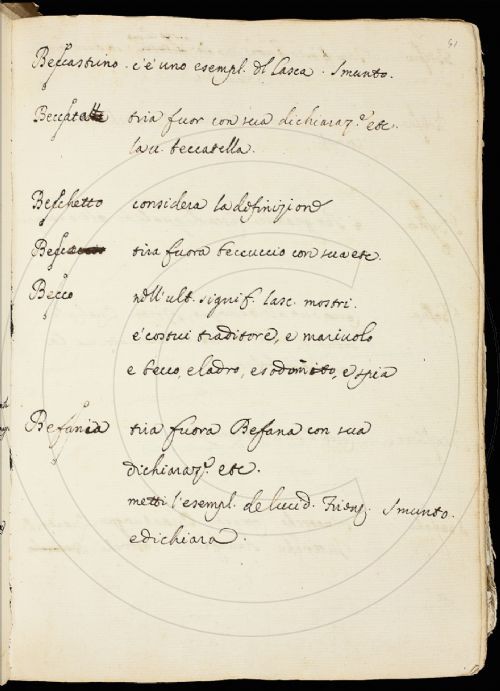 91.
Beccastrino. c'è uno esempl. dl Lasca. Smunto.
Beccata tira fuor con sua dichiaraz.e etc.
la u. beccatella.
Becchetto considera la definizione
Becc tira fuora beccuccio con sua etc.
Becco nell'ult. signif. lasc. mostri.
è costui traditore, e mariuolo
e becco, e ladro, e sodomito, e spia
Befania tira fuora Befana con sua
dichiaraz.e etc.
metti l'esempl. de lucid. Firenz. Smunto.
e dichiara.